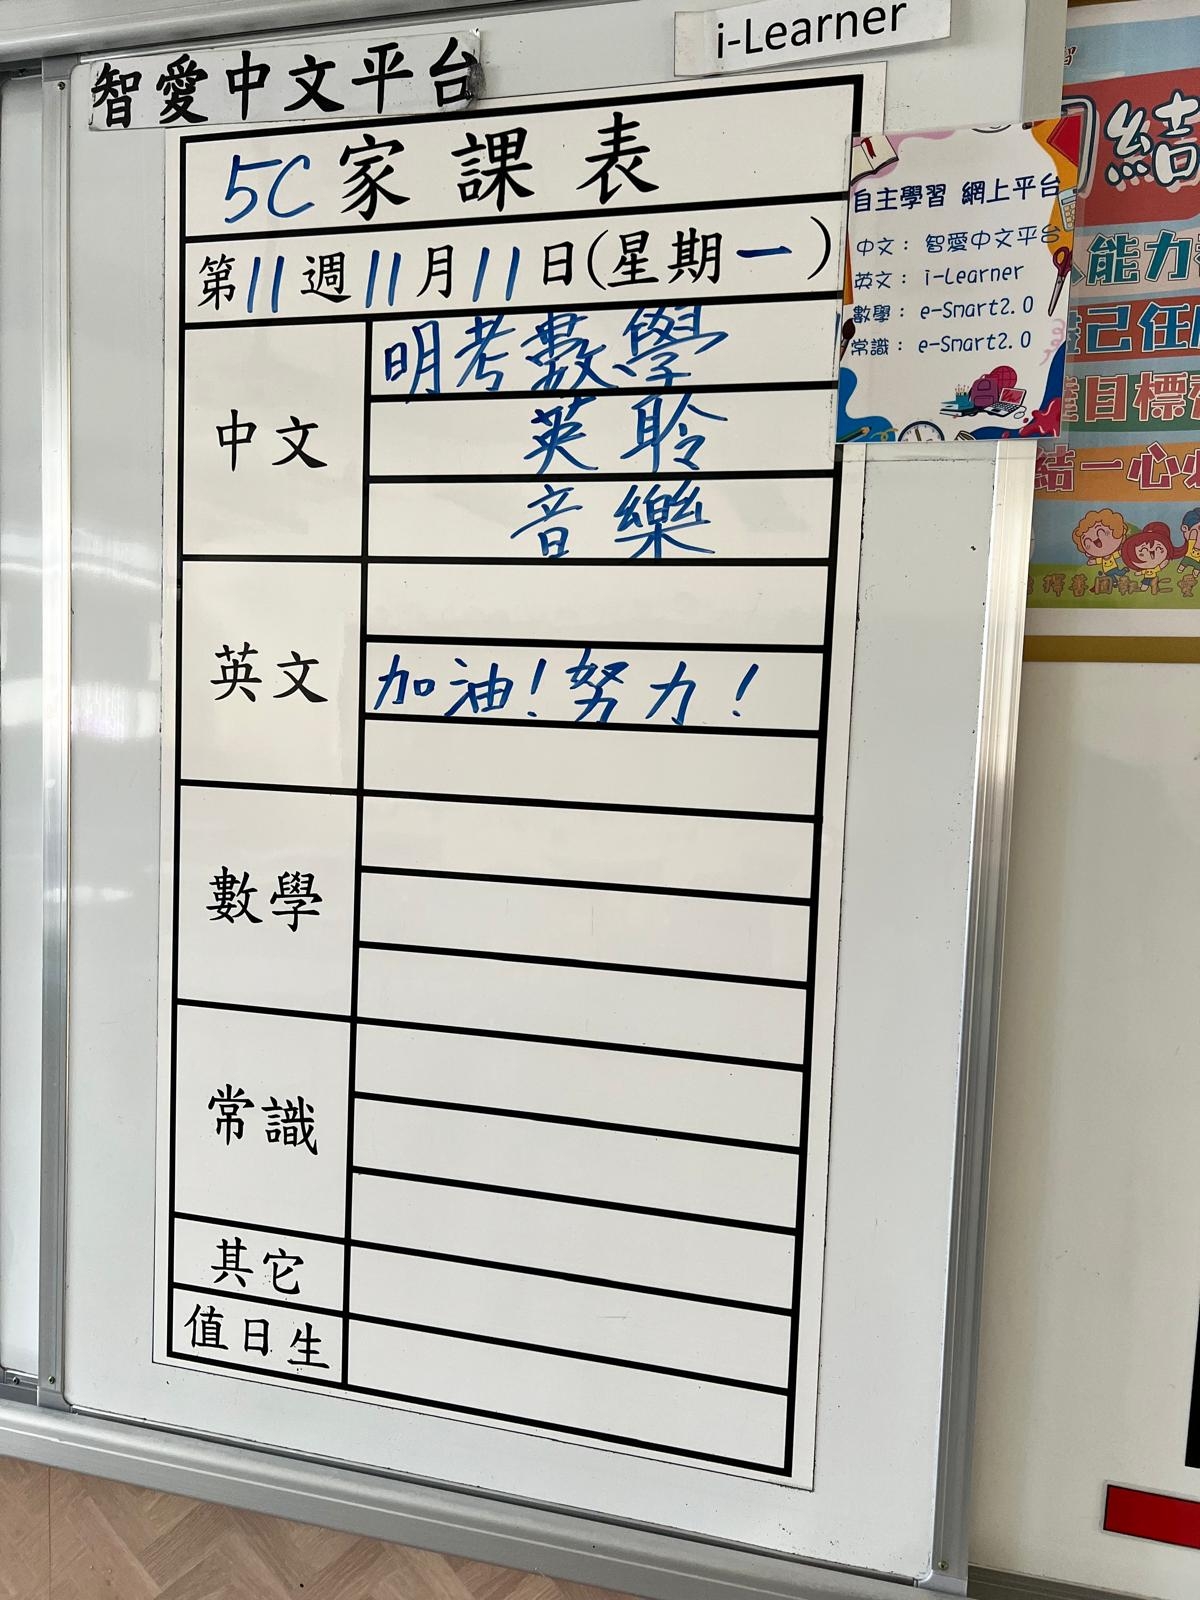 智愛中文平台
i-Learner
5C家課表
第11週11月11日(星期一)
中文
明考數學
英聆
音樂
英文
加油!努力!
數學
常識
其它
值日生
自主學習 網上平台
中文: 智愛中文平台
英文: i-Learner
數學: e-Smart2.0
常識: e-Smart2.0
結
能力
己任
目標
結一心
擇善固執 仁愛